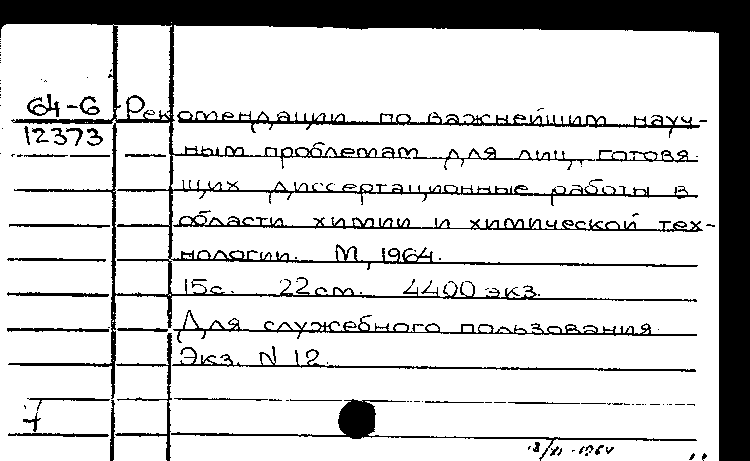 64-6 Рекомендации по важнейшим науч-
12373
ным проблемам для лиц, готовя
щих диссертационные работы в
области химии и химической тех-
нологии. М, 1964.
15с. 22см. 4400 экз.
Для служебного пользования.
Экз. N 12.